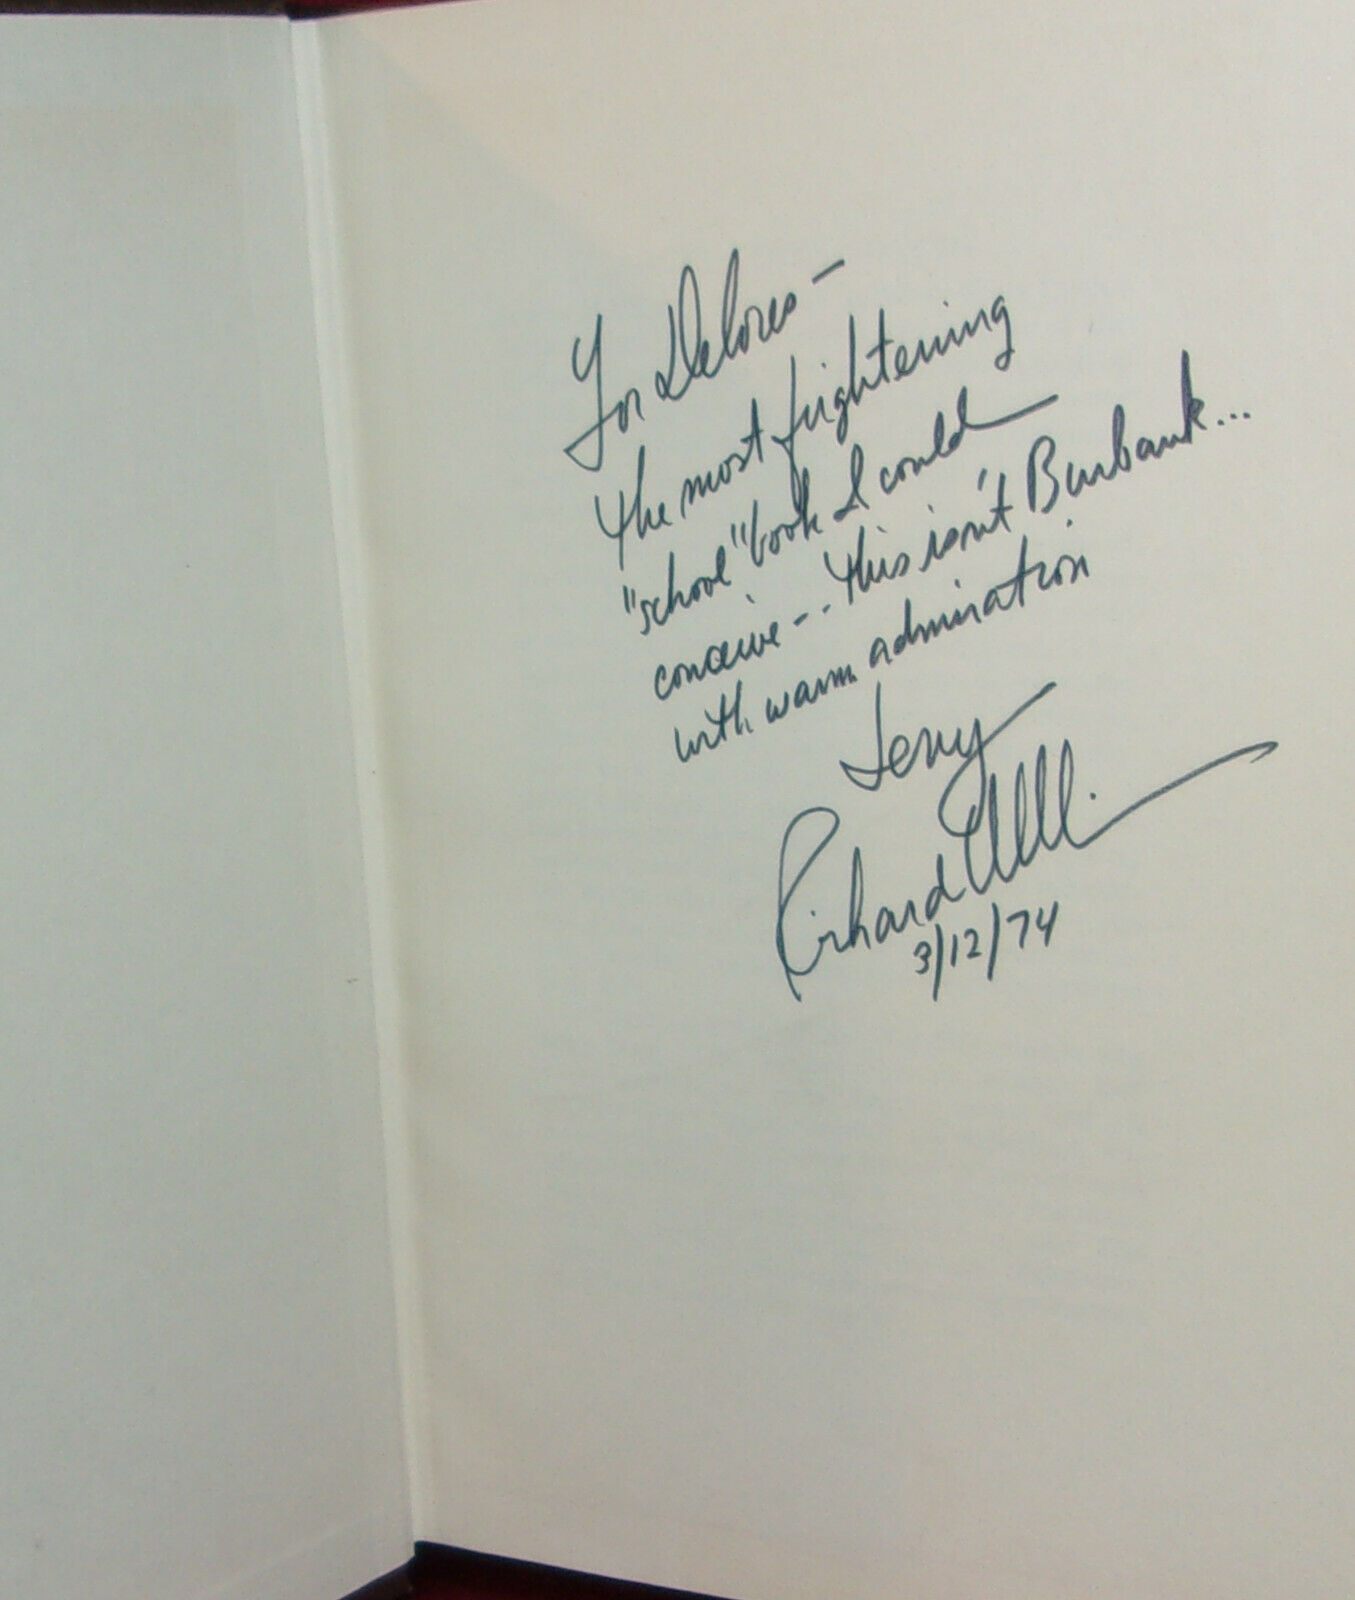 For Delores —
the most frightening
"school" book I could
conceive - . . this isn't Burbank...
with warm admiration
Jerry
Richard
3/12/74